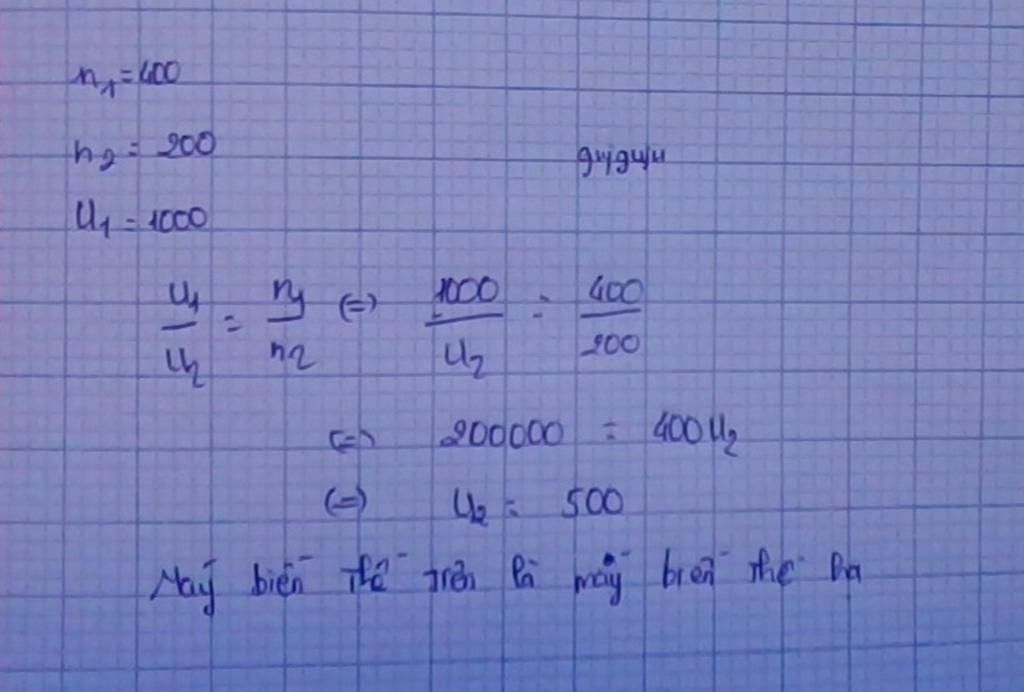 n₁ = 400
n₂ = 200
guiguiu
U₁ = 1000
U₁/U₂ = n₁/n₂ (=) 1000/U₂ = 400/200
(=) 200000 = 400U₂
(=) U₂ = 500
Máy biến thế trên là máy biến thế hạ